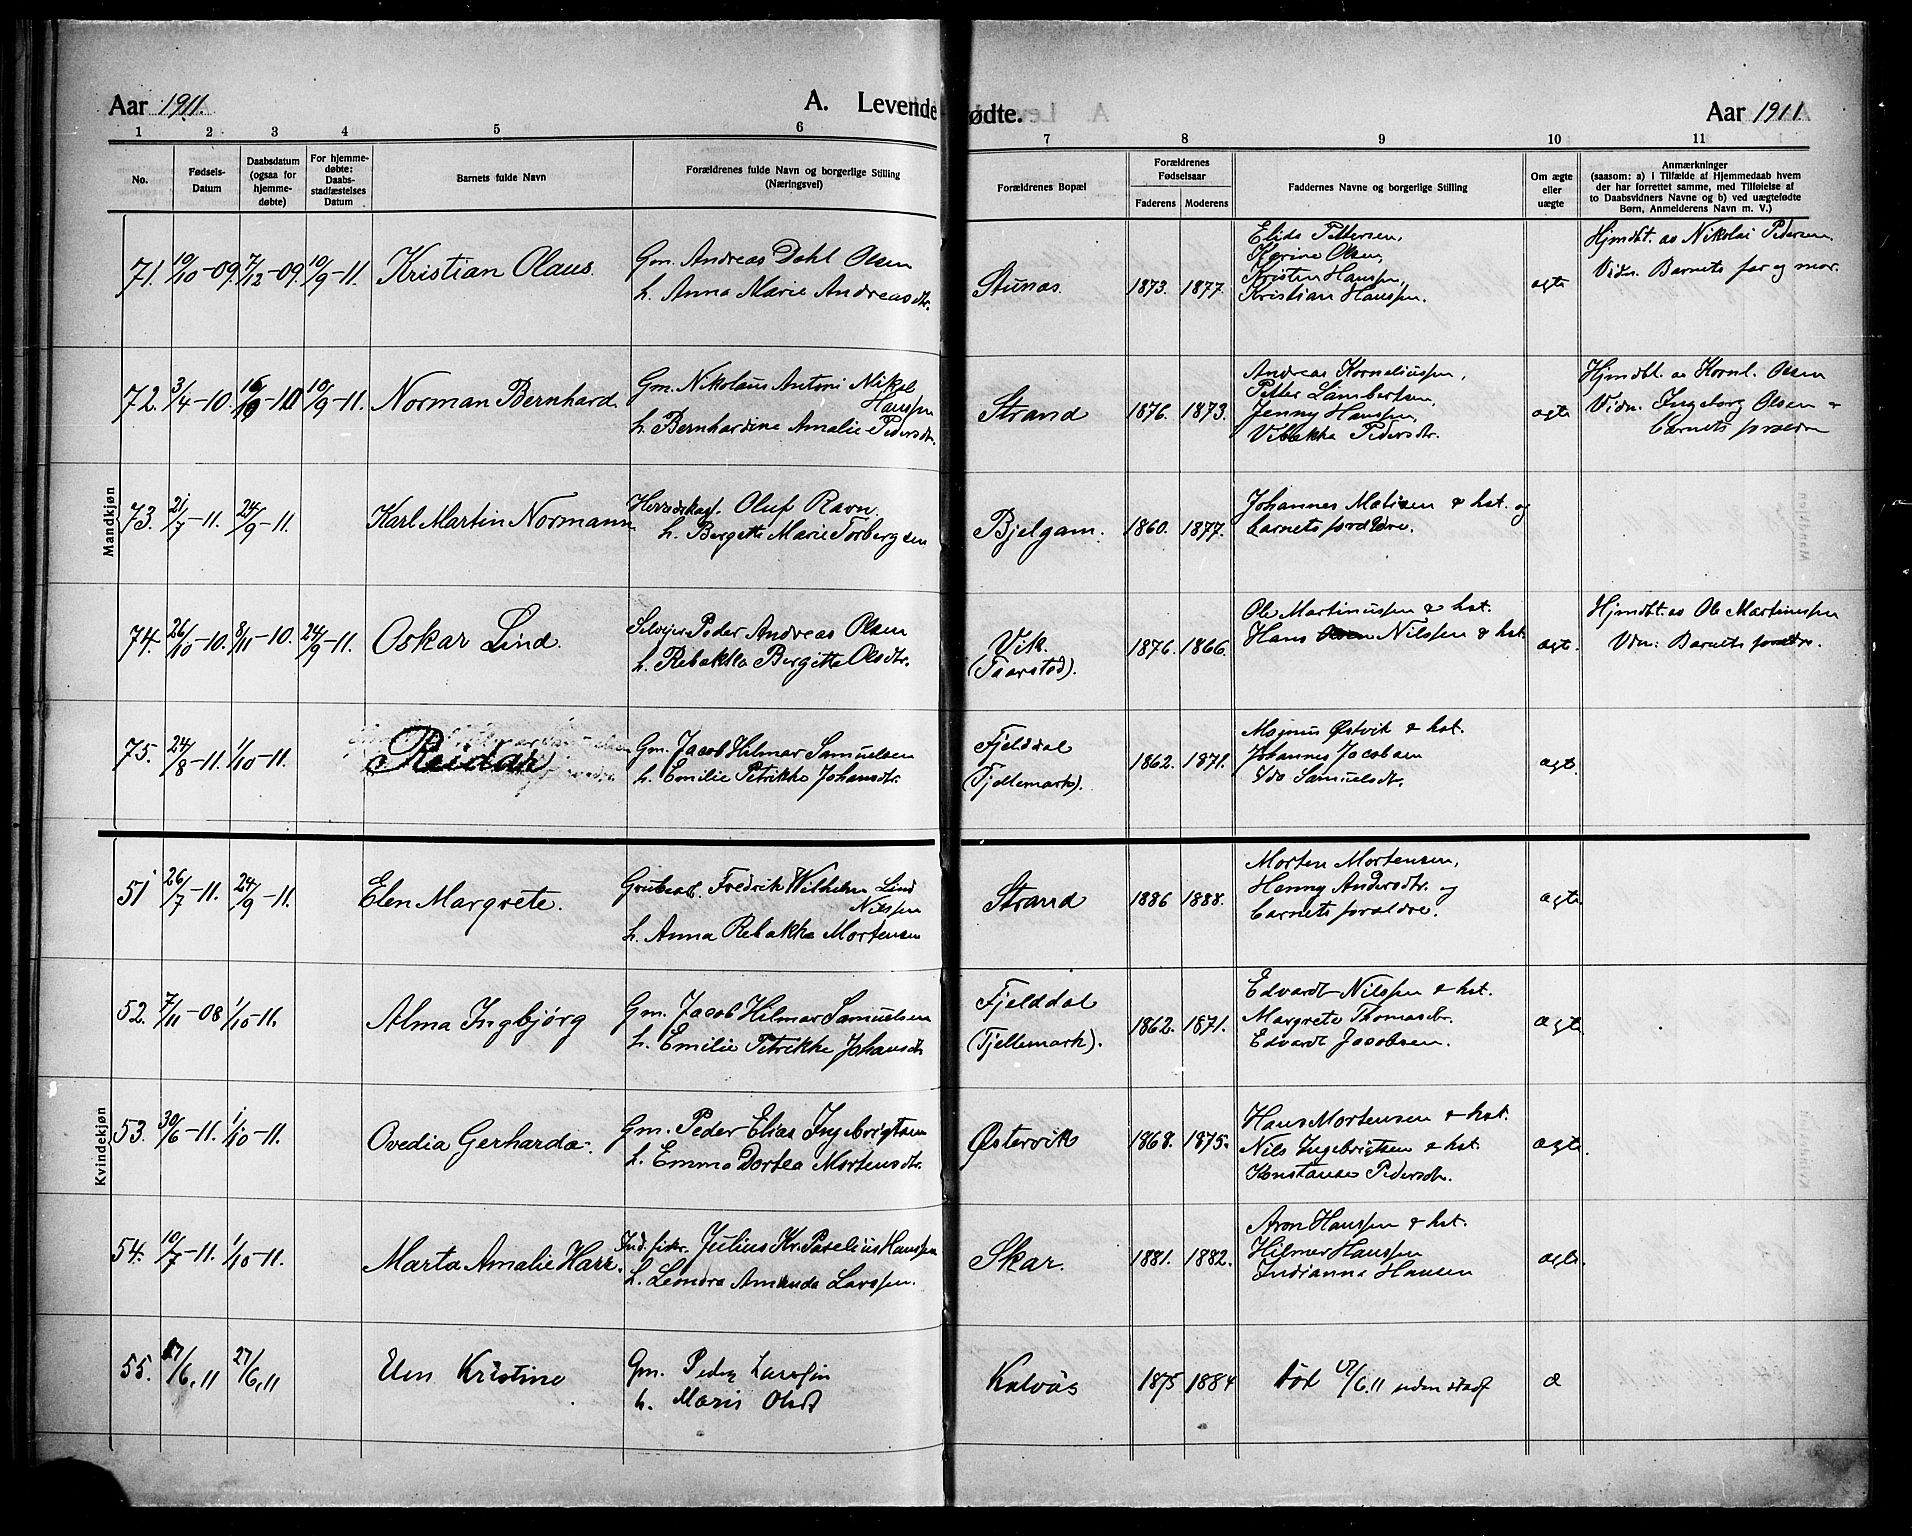 Aar 1911. A. Levende fødte. Aar 1911.
1 2 3 4 5 6 7 8 9 10 11
No.
Fødsels-
Datum
Daabsdatum
(ogsaa for
hjemme-
døbte)
For hjemme-
døbte:
Daabs-
stadfæstelses
Datum
Barnets fulde Navn
Forældrenes fulde Navn og borgerlige Stilling
(Næringsvei)
Forældrenes Bopæl
Forældrenes
Fødselsaar
Faderens Moderens
Faddernes Navne og borgerlige Stilling
Om ægte
eller
uægte
Anmærkninger
(saasom: a) i Tilfælde af Hjemmedaab hvem
der har forrettet samme, med Tilføielse af
to Daabsvidners Navne og b) ved uægtefødte
Børn, Anmelderens Navn m. V.)
Mandkjøn
71. 10/10-09. 7/12-09. 10/9-11. Kristian Olaus.
Gm. Andreas Dahl Olsen
h. Anna Marie Andreasdtr.
Stunes. 1873. 1877.
Elida Pettersen,
Karine Olsen,
Kristen Hanssen,
Kristian Hanssen.
ægte
Hjmdbt. av Nikolai Pedersen
Vidn. Barnets far og mor.
72. 3/4-10. 10/9-11. Norman Bernhard
Gm. Nikolaus Antoni Mikal
Hanssen
h. Bernhardine Amalie Pedersdtr.
Strand 1876. 1873.
Andreas Korneliussen,
Petter Lambertsen,
Jenny Hanssen,
Vibekke Pedersdtr.
ægte
Hjmdbt. av Kornl. Olsen
Vidn. Ingeborg Olsen &
barnets forældre
73. 21/7-11. 24/9-11. Karl Martin Normann
Oluf Ravn.
h. Bergette Marie Torbergsen
Bjelgam. 1860. 1877.
Johannes Matisen & hst. og
barnets forældre.
74. 26/10-10. 8/11-10. 24/9-11. Oskar Lind.
Selveier Peder Andreas Olsen
h. Rebekka Bergitte Olsdtr.
Vik.
(Taarstad). 1876. 1866.
Ole Martinussen & hst.
Hans Nilssen & hst.
ægt.
Hjmdbt. av Ole Martinussen
Vdn: Barnets forældre.
75. 24/8-11. 1/10-11. Reidar
Gm. Jacob Hilmar Samuelsen
h. Emilie Petrikke Johansdtr.
Fjelddal
(Tjellemark). 1862. 1871.
Magnus Østvik & hst.
Johannes Jacobsen
Ida Samuelsdtr.
ægt.
Kvindekjøn
51 26/7-11. 24/9-11. Elen Margrete.
Grubearb. Fredrik Wilhelm Lind
Nilssen
h. Anna Rebekka Mortensen
Strand 1886 1888.
Morten Mortensen,
Hanny Andersdtr. og
barnets forældre.
ægte
52. 7/11-08 1/10-11. Alma Ingbjørg
Gm. Jacob Hilmar Samuelsen
h. Emilie Petrikke Johansdtr
Fjelddal
(Tjellemark). 1862. 1871.
Edvardt Nilssen & hst.
Margrete Thomasdtr.
Edvardt Jacobsen.
ægte
53. 30/6-11. 1/10-11. Ovedia Gerharda.
Gm. Peder Elias Ingebrigtsen
h. Emma Dortea Mortensdtr.
Østervik 1868. 1875.
Hans Mortensen & hst.
Nils Ingebrigtsen & hst.
Konstanse Pedersdtr.
ægte.
54. 10/7-11. 1/10-11. Marta Amalie Harr.
Ind. fisker. Julius Kr. Pareliius Hanssen
h. Leonora Amanda Larssen.
Skar. 1881. 1882.
Aron Hanssen & hst.
Hilmar Hanssen
Indianna Hansen
ægte.
55. 27/6.11 27/6.11 Elen Kristine
Gm. Peder Larssen
h. Maris Olsdt
Kalvås 1875 1884
død /6.11 uden stadf
æ